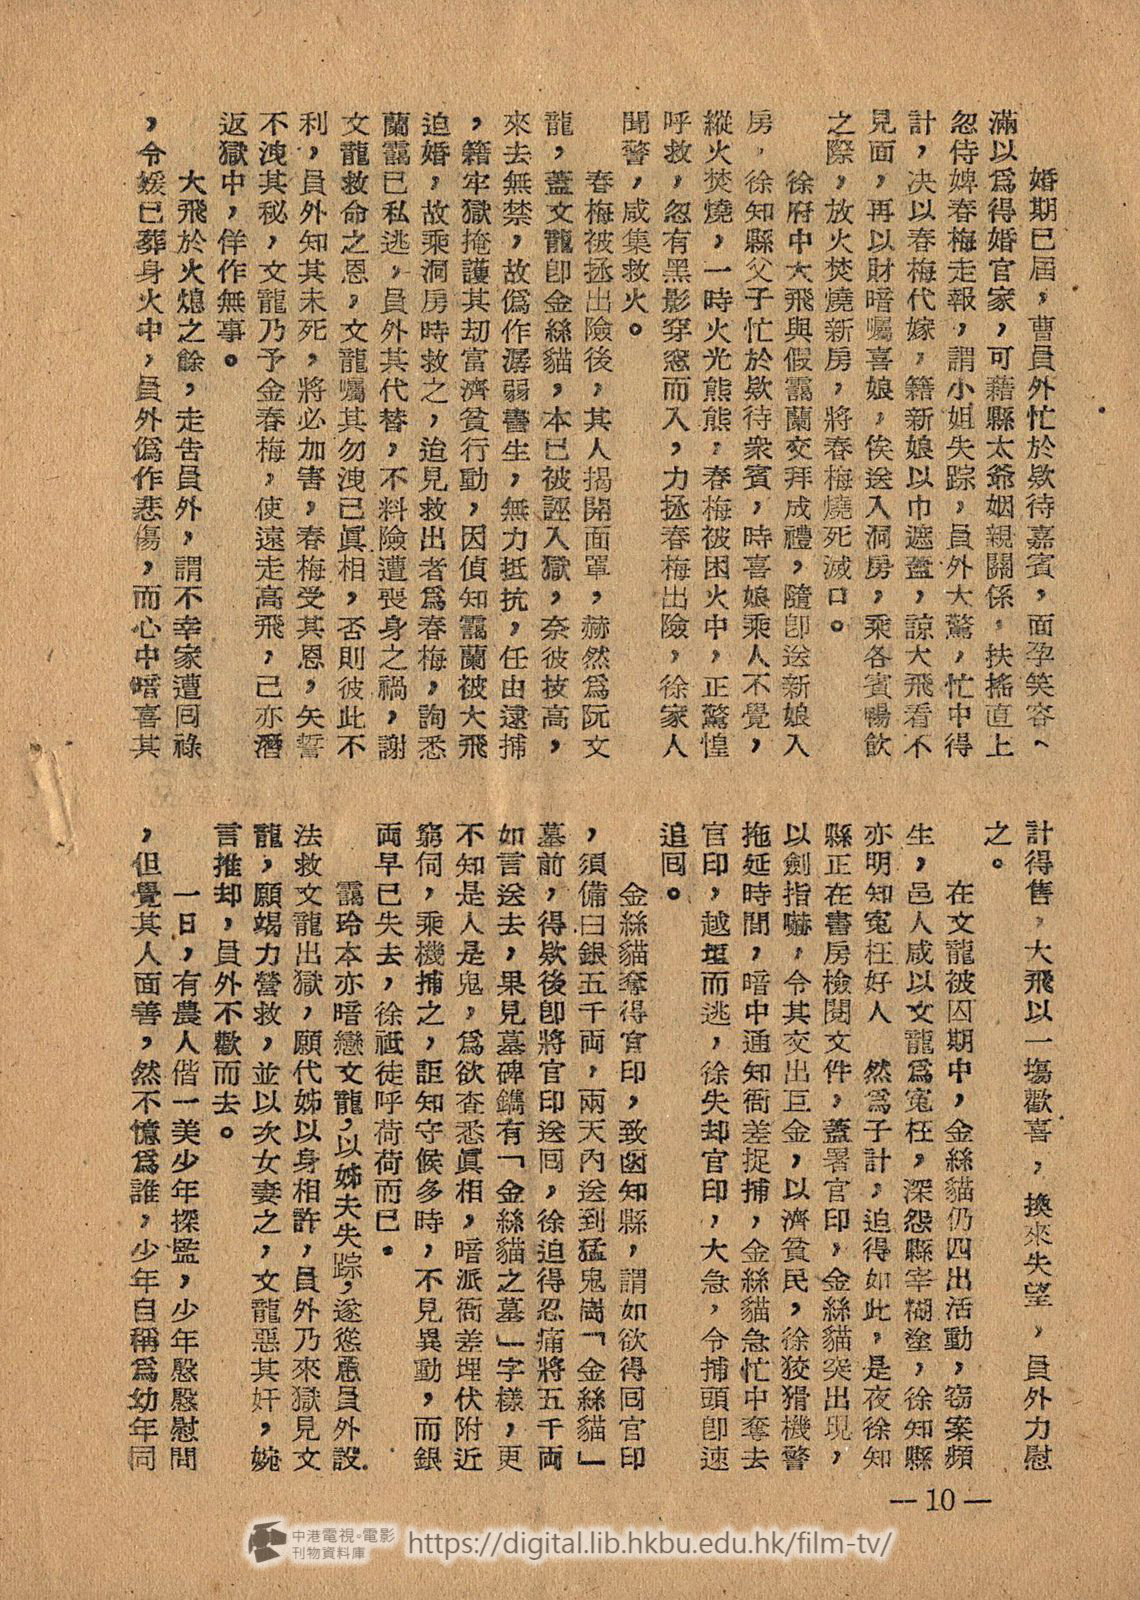 婚期已屆，曹員外忙於欵待嘉賓，面孕笑容、
滿以爲得婚官家，可藉縣太爺姻親關係，扶搖直上
忽侍婢春梅走報，謂小姐失踪，員外大驚，忙中得
計，决以春梅代嫁，籍新娘以巾遮蓋，諒大飛看不
見面，再以財暗囑喜娘，俟送入洞房，乘各賓暢飲
之際，放火焚燒新房，將春梅燒死滅口。
徐府中大飛與假靄蘭交拜成禮，隨卽送新娘入
房，徐知縣父子忙於欵待衆賓，時喜娘乘人不覺，
縱火焚燒，一時火光熊熊，春梅被困火中，正驚惶
呼救，忽有黑影穿窓而入，力拯春梅出險，徐家人
聞警，咸集救火。
春梅被拯出險後，其人揭開面罩，赫然爲阮文
龍，蓋文龍卽金絲貓，本已被誣入獄，奈彼技高，
來去無禁，故僞作孱弱書生，無力抵抗，任由逮捕
，籍牢獄掩護其刧富濟貧行動，因偵知靄蘭被大飛
迫婚，故乘洞房時救之，迨見救出者爲春梅，詢悉
蘭靄已私逃，員外其代替，不料險遭喪身之禍，謝
文龍救命之恩，文龍囑其勿洩已眞相，否則彼此不
利，員外知其未死，將必加害，春梅受其恩，矢誓
不洩其秘，文龍乃予金春梅，使遠走高飛，己亦潛
返獄中，佯作無事。
大飛於火熄之餘，走告員外，謂不幸家遭囘祿
，令媛已葬身火中，員外僞作悲傷，而心中暗喜其
計得售，大飛以一塲歡喜，換來失望，員外力慰
之。
在文龍被囚期中，金絲貓仍四出活動，窃案頻
生，邑人咸以文龍爲寃枉，深怨縣宰糊塗，徐知縣
亦明知寃枉好人　然爲子計，迫得如此，是夜徐知
縣正在書房檢閱文件，蓋署官印，金絲貓突出現，
以劍指嚇，令其交出巨金，以濟貧民，徐狡猾機警
拖延時間，暗中通知衙差捉捕，金絲貓急忙中奪去
官印，越垣而逃，徐失却官印，大急，令捕頭卽速
追囘。
金絲貓奪得官印，致函知縣，謂如欲得囘官印
，須備白銀五千両，兩天內送到猛鬼崗「金絲貓」
墓前，得欵後卽將官印送囘，徐迫得忍痛將五千両
如言送去，果見墓碑鐫有「金絲貓之墓」字樣，更
不知是人是鬼，爲欲查悉眞相，暗派衙差埋伏附近
窮伺，乘機捕之，詎知守候多時，不見異動，而銀
両早已失去，徐祗徒呼荷荷而已。
靄玲本亦暗戀文龍，以姊夫失踪，遂慫恿員外設
法救文龍出獄，願代姊以身相許，員外乃來獄見文
龍，願竭力營救，並以次女妻之，文龍惡其奸，婉
言推却，員外不歡而去。
一日，有農人偕一美少年探監，少年慇慇慰問
，但覺其人面善，然不憶爲誰，少年自稱爲幼年同
—10—
中港電視·電影
刊物資料庫
https://digital.lib.hkbu.edu.hk/film-tv/